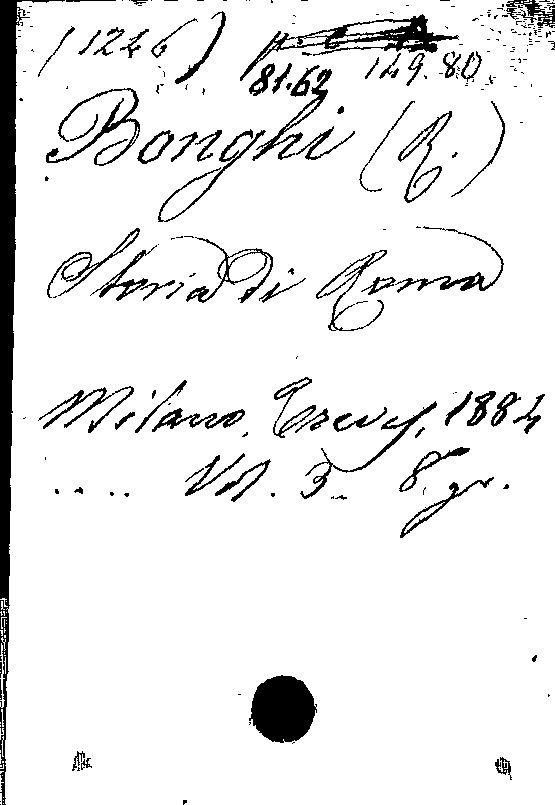 (1246) 149.80
81.62
Bonghi (R.)
Storia di Roma
Milano, Treves, 1884
.... Vol. 3. 8.° gr.